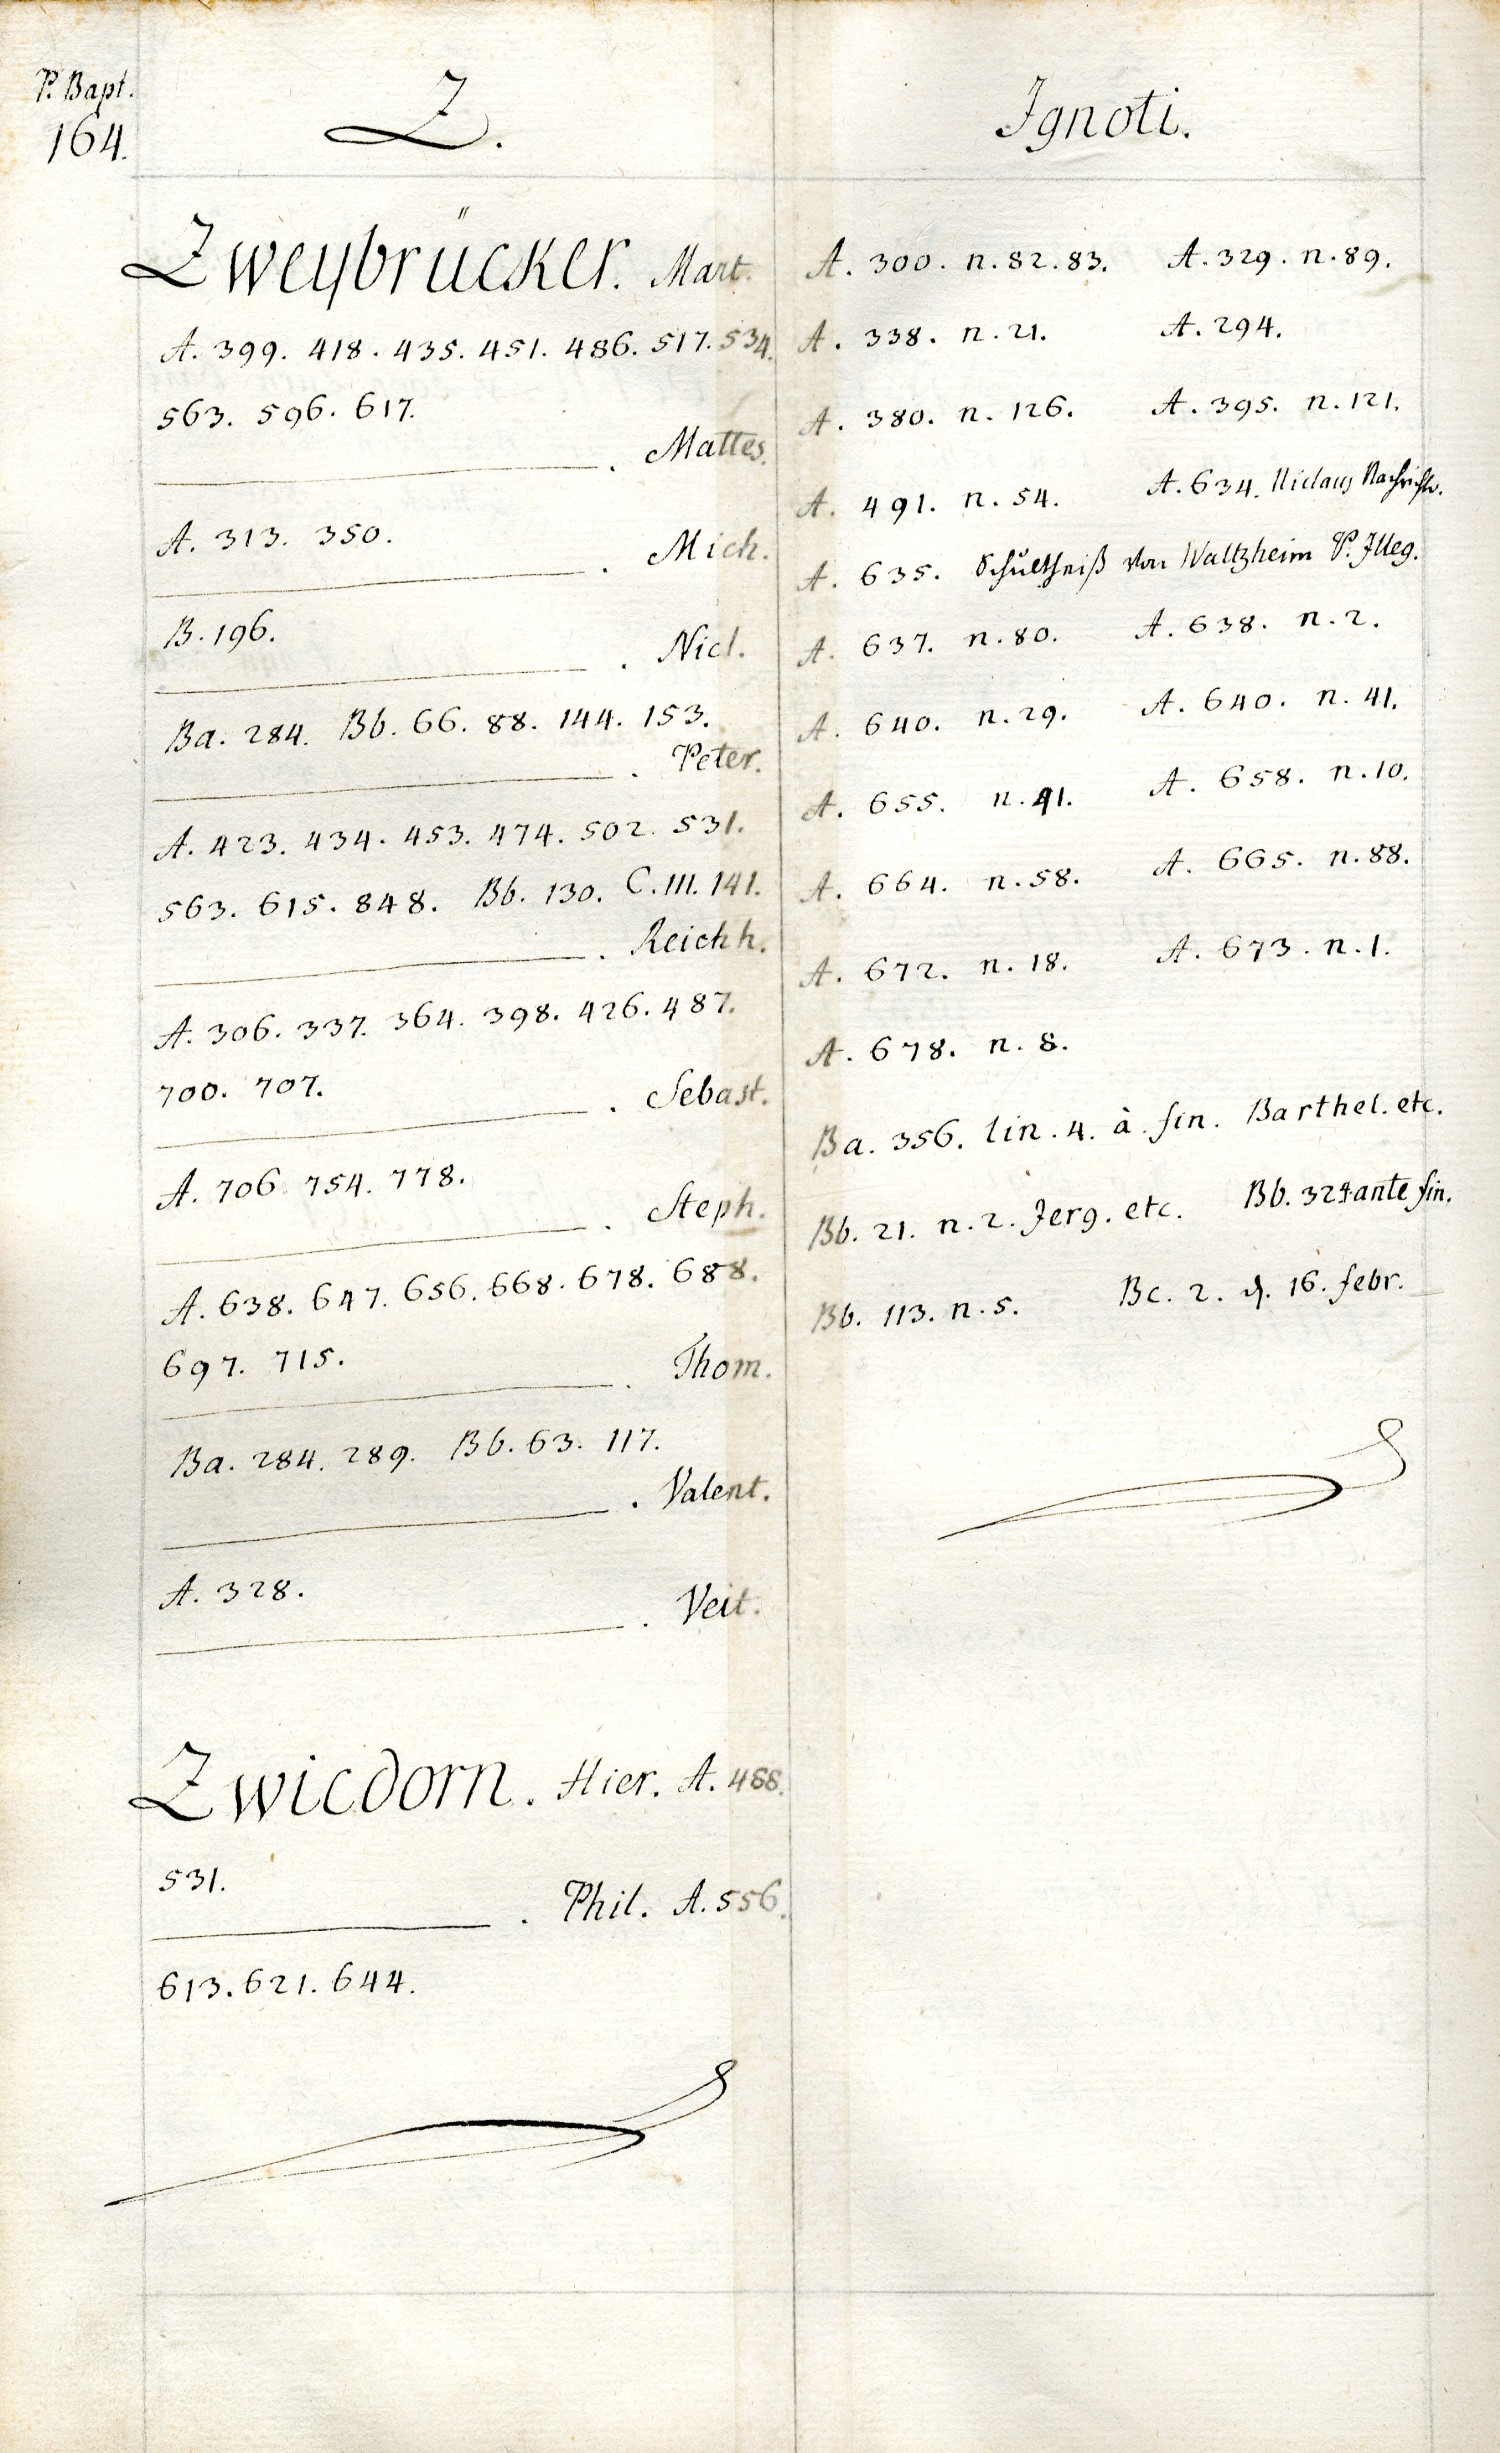 P. Bapt.
164.
Z.
Zweybrücker. Mart.
A. 399. 418. 435. 451. 486. 517. 534.
563. 596. 617.
. Mattes.
A. 313. 350.
. Mich.
B. 196.
. Nicl.
Ba. 284. Bb. 66. 88. 144. 153.
. Peter.
A. 423. 434. 453. 474. 502. 531.
563. 615. 848. Bb. 130. C. III. 141.
. Reichh.
A. 306. 337. 364. 398. 426. 487.
700. 707.
. Sebast.
A. 706. 754. 778.
. Steph.
A. 638. 647. 656. 668. 678. 688.
697. 715.
. Thom.
Ba. 284. 289. Bb. 63. 117.
. Valent.
A. 328.
. Veit.
Zwicdorn. Hier. A. 488.
531.
. Phil. A. 556.
613. 621. 644.
Ignoti.
A. 300. n. 82. 83. A. 329. n. 89.
A. 338. n. 21. A. 294.
A. 380. n. 126. A. 395. n. 121.
A. 491. n. 54. A. 634. Niclaus
A. 635. Schultheiß von Waltzheim P. Illeg.
A. 637. n. 80. A. 638. n. 2.
A. 640. n. 29. A. 640. n. 41.
A. 655. n. 41. A. 658. n. 10.
A. 664. n. 58. A. 665. n. 88.
A. 672. n. 18. A. 673. n. 1.
A. 678. n. 8.
Ba. 356. lin. 4. à fin. Barthel. etc.
Bb. 21. n. 2. Jerg. etc. Bb. 324 ante fin.
Bb. 113. n. 5. Bc. 2. d. 16. febr.